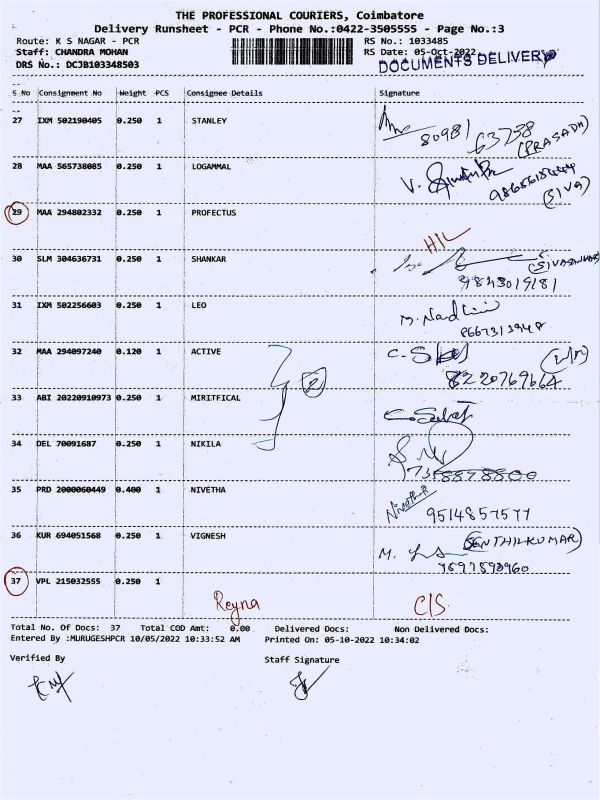 THE PROFESSIONAL COURIERS, Coimbatore
Delivery Runsheet - PCR - Phone No.:0422-3505555 - Page No.:3
Route: K S NAGAR - PCR RS No.: 1033485
Staff: CHANDRA MOHAN RS Date: 05-Oct-2022
DRS No.: DCJB103348503 DOCUMENTS DELIVERY
S No Consignment No Weight PCS Consignee Details Signature
27 IXM 502190405 0.250 1 STANLEY
80981 63738
(PRASADH)
28 MAA 565738085 0.250 1 LOGAMMAL
V.
(SIVA)
29 MAA 294802332 0.250 1 PROFECTUS
H/L
30 SLM 304636731 0.250 1 SHANKAR
9843019181
31 IXM 502256603 0.250 1 LEO
M. Nandhini
8667313948
32 MAA 294097240 0.120 1 ACTIVE
8220769664
2
33 ABI 20220910973 0.250 1 MIRITFICAL
34 DEL 70091687 0.250 1 NIKILA
7358878800
35 PRD 2000060449 0.400 1 NIVETHA
Nivetha
9514857577
36 KUR 694051568 0.250 1 VIGNESH
(SENTHILKUMAR)
M.
9697893960
37 VPL 215032555 0.250 1
Reyna C/S
Total No. Of Docs: 37 Total COD Amt: 0.00 Delivered Docs: Non Delivered Docs:
Entered By :MURUGESHPCR 10/05/2022 10:33:52 AM Printed On: 05-10-2022 10:34:02
Verified By Staff Signature